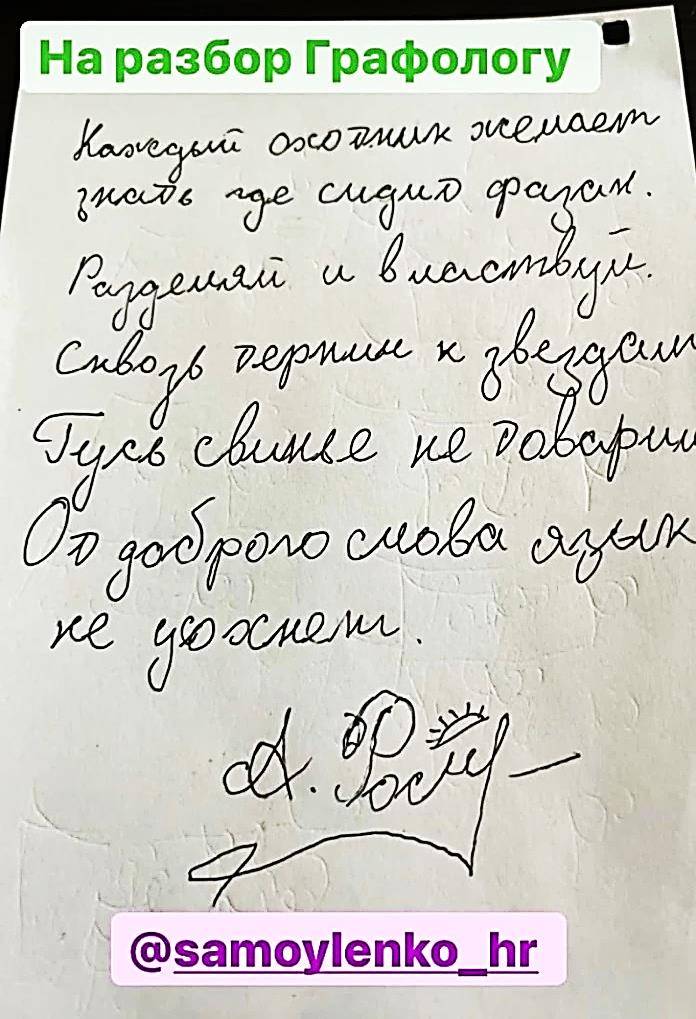 На разбор Графологу
Каждый охотник желает
знать где сидит фазан.
Разделяй и властвуй.
Сквозь тернии к звездам
Гусь свинье не товарищ
От доброго слова язык
не усохнет.
А. Росл
@samoylenko_hr